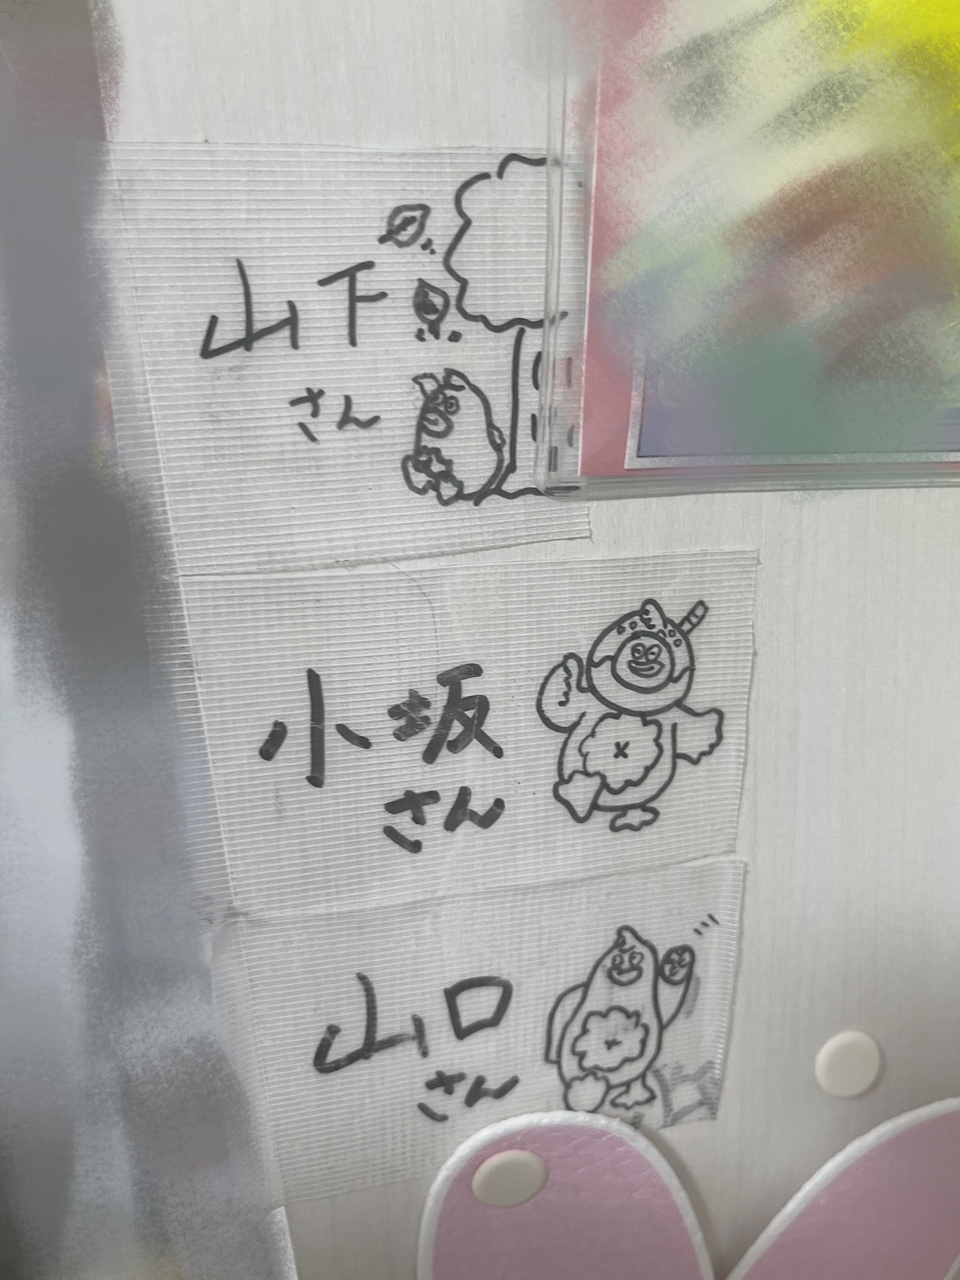 山下
さん
小坂
さん
山口
さん